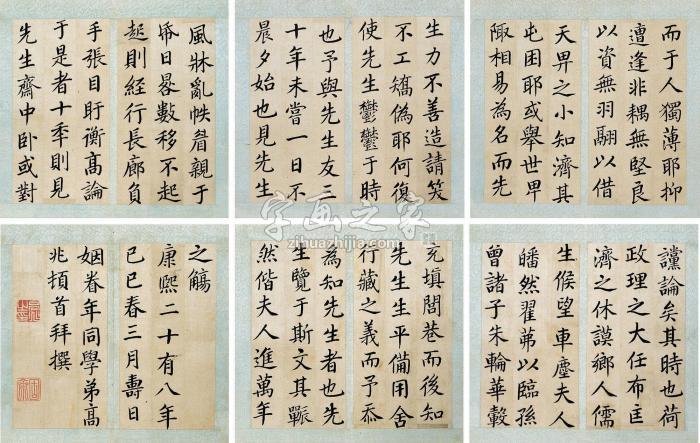 而于人獨薄耶抑
遭逢非耦無堅良
以資無羽翮以借
天畀之小知濟其
屯困耶或舉世畀
陬相易為名而先
生力不善造請笑
不工矯偽耶何復
使先生鬱鬱于時
也予與先生友三
十年未嘗一日不
晨夕始也見先生
風牀亂帙親于
帋日晷數移不起
起則經行長廊負
手張目盱衡高論
于是者十季則見
先生齋中卧或對
讜論矣其時也荷
政理之大任布匡
濟之休謨鄉人儒
生候望車塵夫人
皤然翟茀以臨孫
曾諸子朱輪華轂
充填閭巷而後知
先生生平備用舍
行藏之義而予忝
為知先生者也先
生覽于斯文其囅
然偕夫人進萬年
之觴
康熙二十有八年
己巳春三月壽日
姻眷年同學弟高
兆頓首拜撰
字画之家
zihuazhijia.com